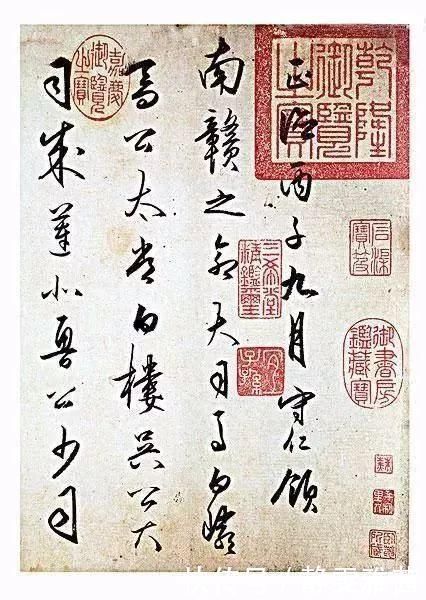 乾隆御覽之寶
石渠寶笈
御書房鑑藏寶
正德丙子九月守仁領
三希堂精鑑璽
宜子孫
南贛之命大司馬白巖
喬公太常白樓吳公大
嘉慶御覽之寶
司成蓮北魯公少司